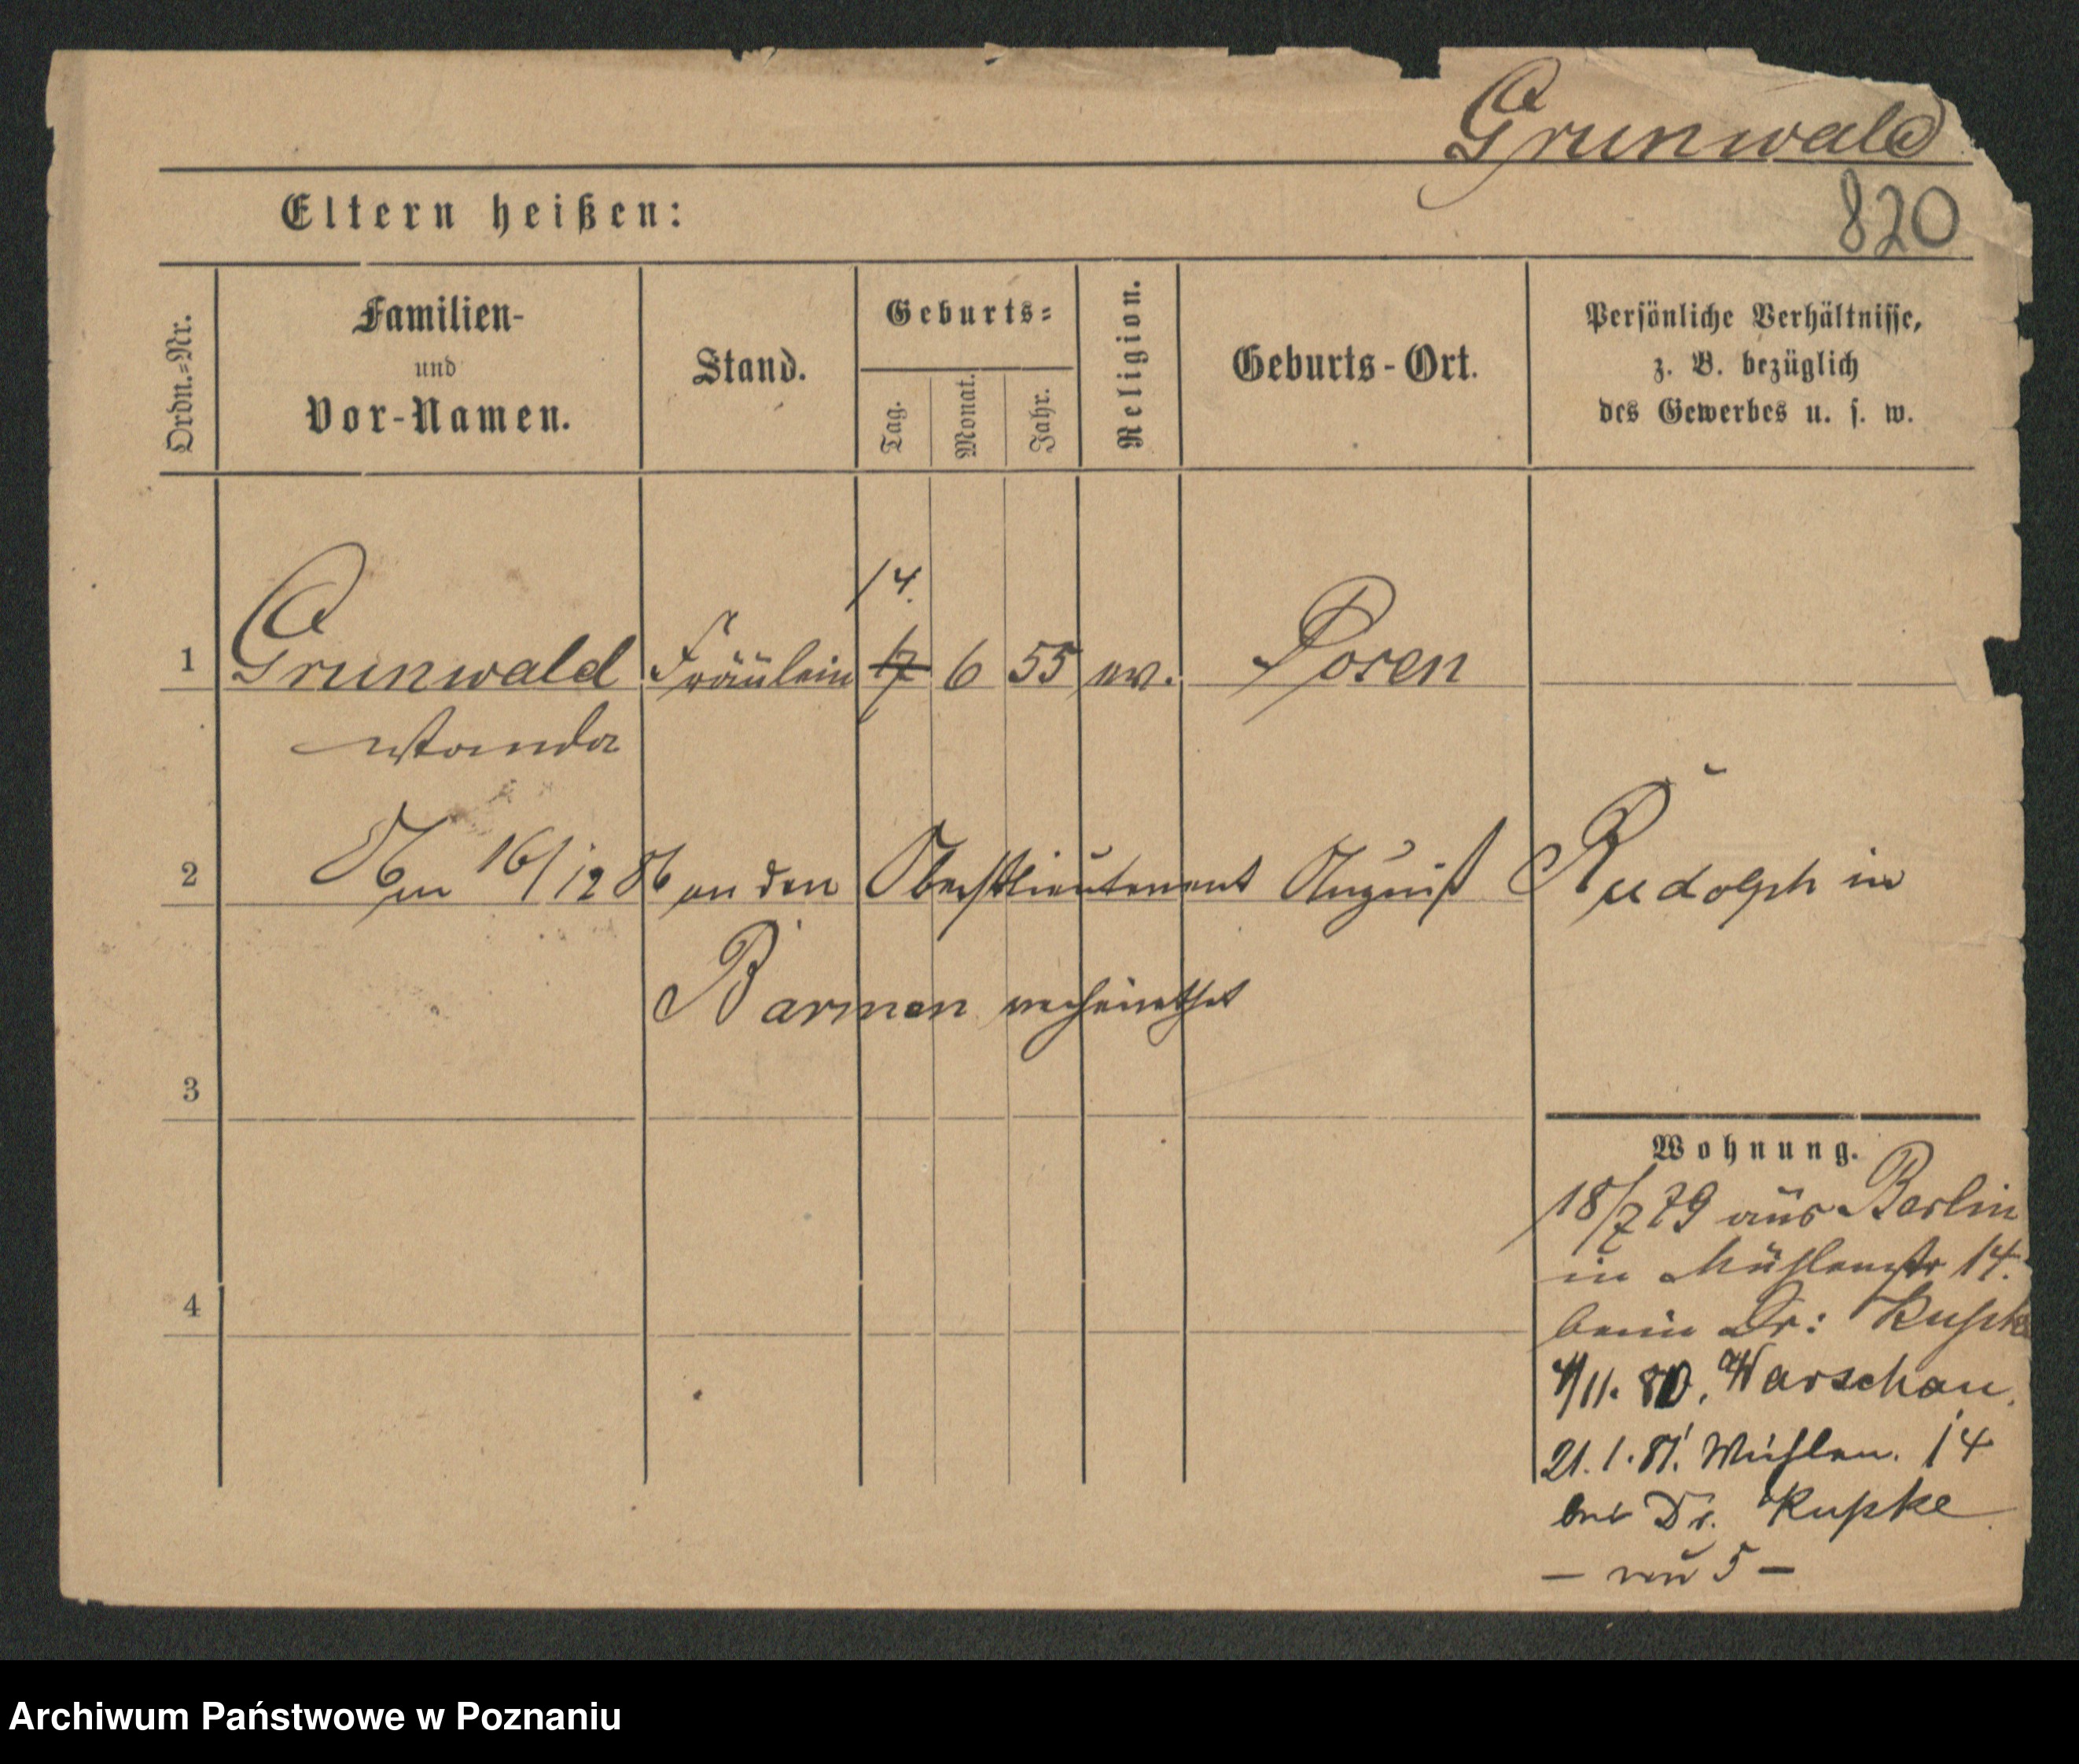 Grunwald
820
Eltern heißen:
Ordn.=Nr.
Familien-
und
Vor-Namen.
Stand.
Geburts=
Tag.
Monat.
Jahr.
Religion.
Geburts-Ort.
Persönliche Verhältnisse,
z. B. bezüglich
des Gewerbes u. s. w.
14.
1 Grunwald Fräulein 17 6 55 ev. Posen
Wanda
2 Am 16/12 86 an den Oberstlieutenant August Rudolph in
Barmen verheirathet
3
4
Wohnung.
18/7 79 aus Berlin
in Mühlenstr 14.
beim Dr: Kupke
4/11. 80. Warschau.
21. 1. 81. Mühlen. 14
bei Dr. Kupke
— 5 —
Archiwum Państwowe w Poznaniu